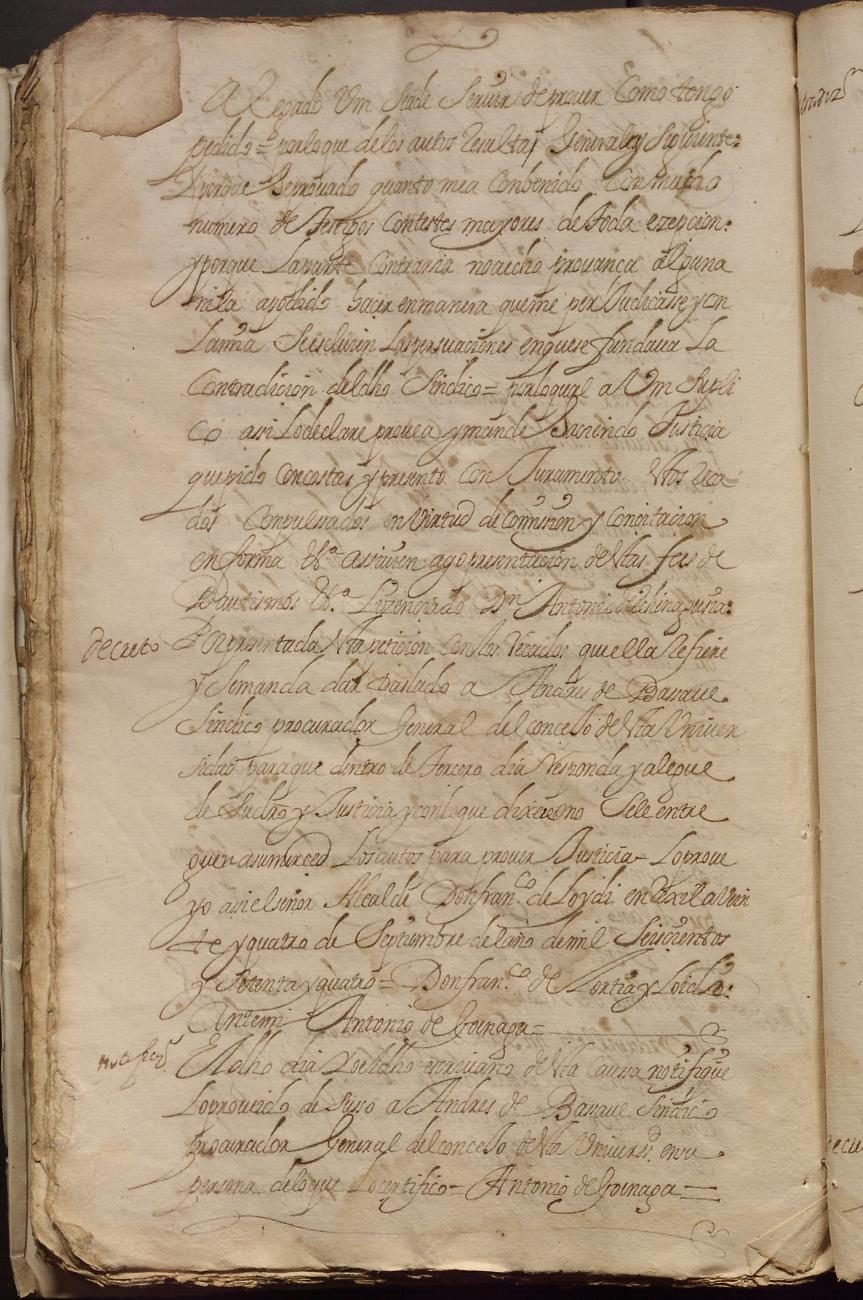 Alegado Vm Sea de Servir de prover Como tengo
pedido = por lo que de los autos Resulta, General y Siguiente:
y porque He provado quanto me a Conbenido Con mucho
numero de Testigos Contestes mayores de toda exepcion:
y porque La parte Contraria no a echo provança alguna
ni la a podido hacer en manera que me perJudicasse y con
La mia Se escluien Las persuaciones en que se fundava La
Contradicion del dho Sindico = por lo qual a Vm Supli
co assi Lo declare provea y mande Haciendo Justicia
que pido con costas y presento Con Juramento Vtos Reca
dos Conpulsados en Virtud de comission y Con citacion
en forma assi vien ago presentacion de Vtas fees de
Bautismos Lizenciado Dn Antonio de
decreto Por presentada Vta peticion Con los Recados que ella Refiere
y Se manda dar traslado a Andres de Basave
Sindico procurador General del concejo de Vta Univer
sidad para que dentro de tercero dia Responda y alegue
de Su dro y Justicia y con lo que dixere o no Se le entre
guen a su merced Los autos para prover Justicia - Lo prove
yo assi el señor Alcalde Don franco de Loydi en a Vein
te y quatro de Septiembre del año de mil Seiscientos
y Setenta y quatro = Don franco de y Loidi:
Antemi Antonio de Goenaga =
notificon El dho dia Yo el dho escrivano de Vta Caussa notifique
Lo proveido de Suso a Andres de Basave Sindico
procurador General del concejo de Vta Universd. en su
persona de lo que Lo certifico = Antonio de Goenaga =